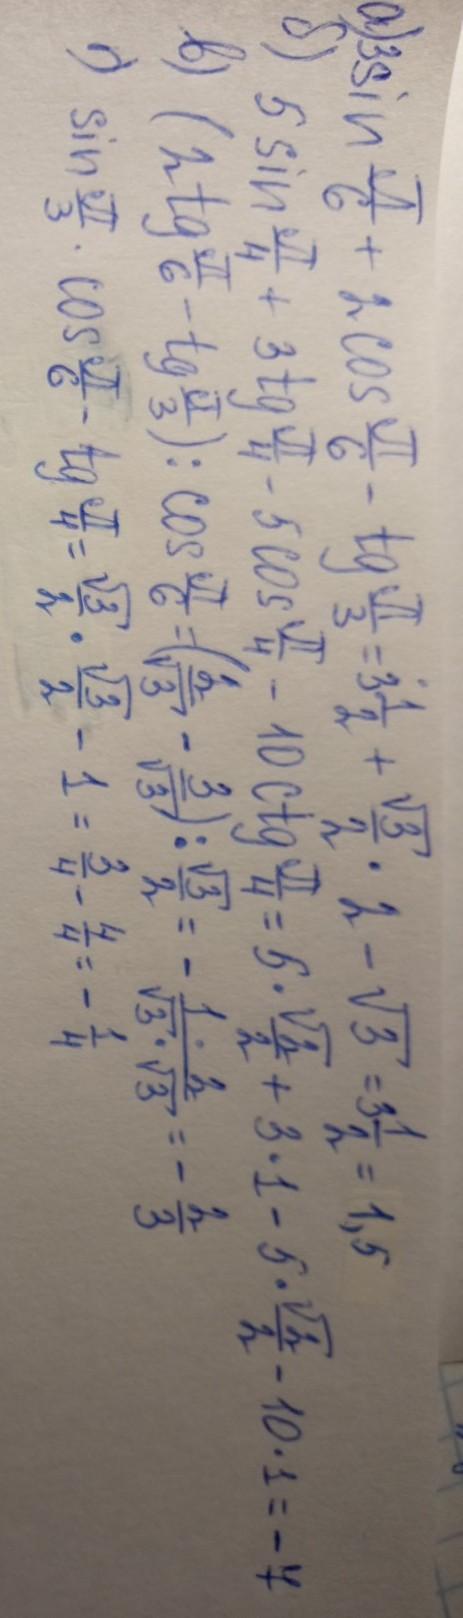 а) 3 sin π/6 + 2 cos π/6 - tg π/3 = 3 1/2 + √3/2 · 2 - √3 = 3 1/2 = 1,5
б) 5 sin π/4 + 3 tg π/4 - 5 cos π/4 - 10 ctg π/4 = 5 · √2/2 + 3 · 1 - 5 · √2/2 - 10 · 1 = -7
в) (2 tg π/6 - tg π/3) : cos π/6 = (2/√3 - 3/√3) : √3/2 = - 1 · 2/√3 · √3 = - 2/3
г) sin π/3 · cos π/6 - tg π/4 = √3/2 · √3/2 - 1 = 3/4 - 4/4 = - 1/4